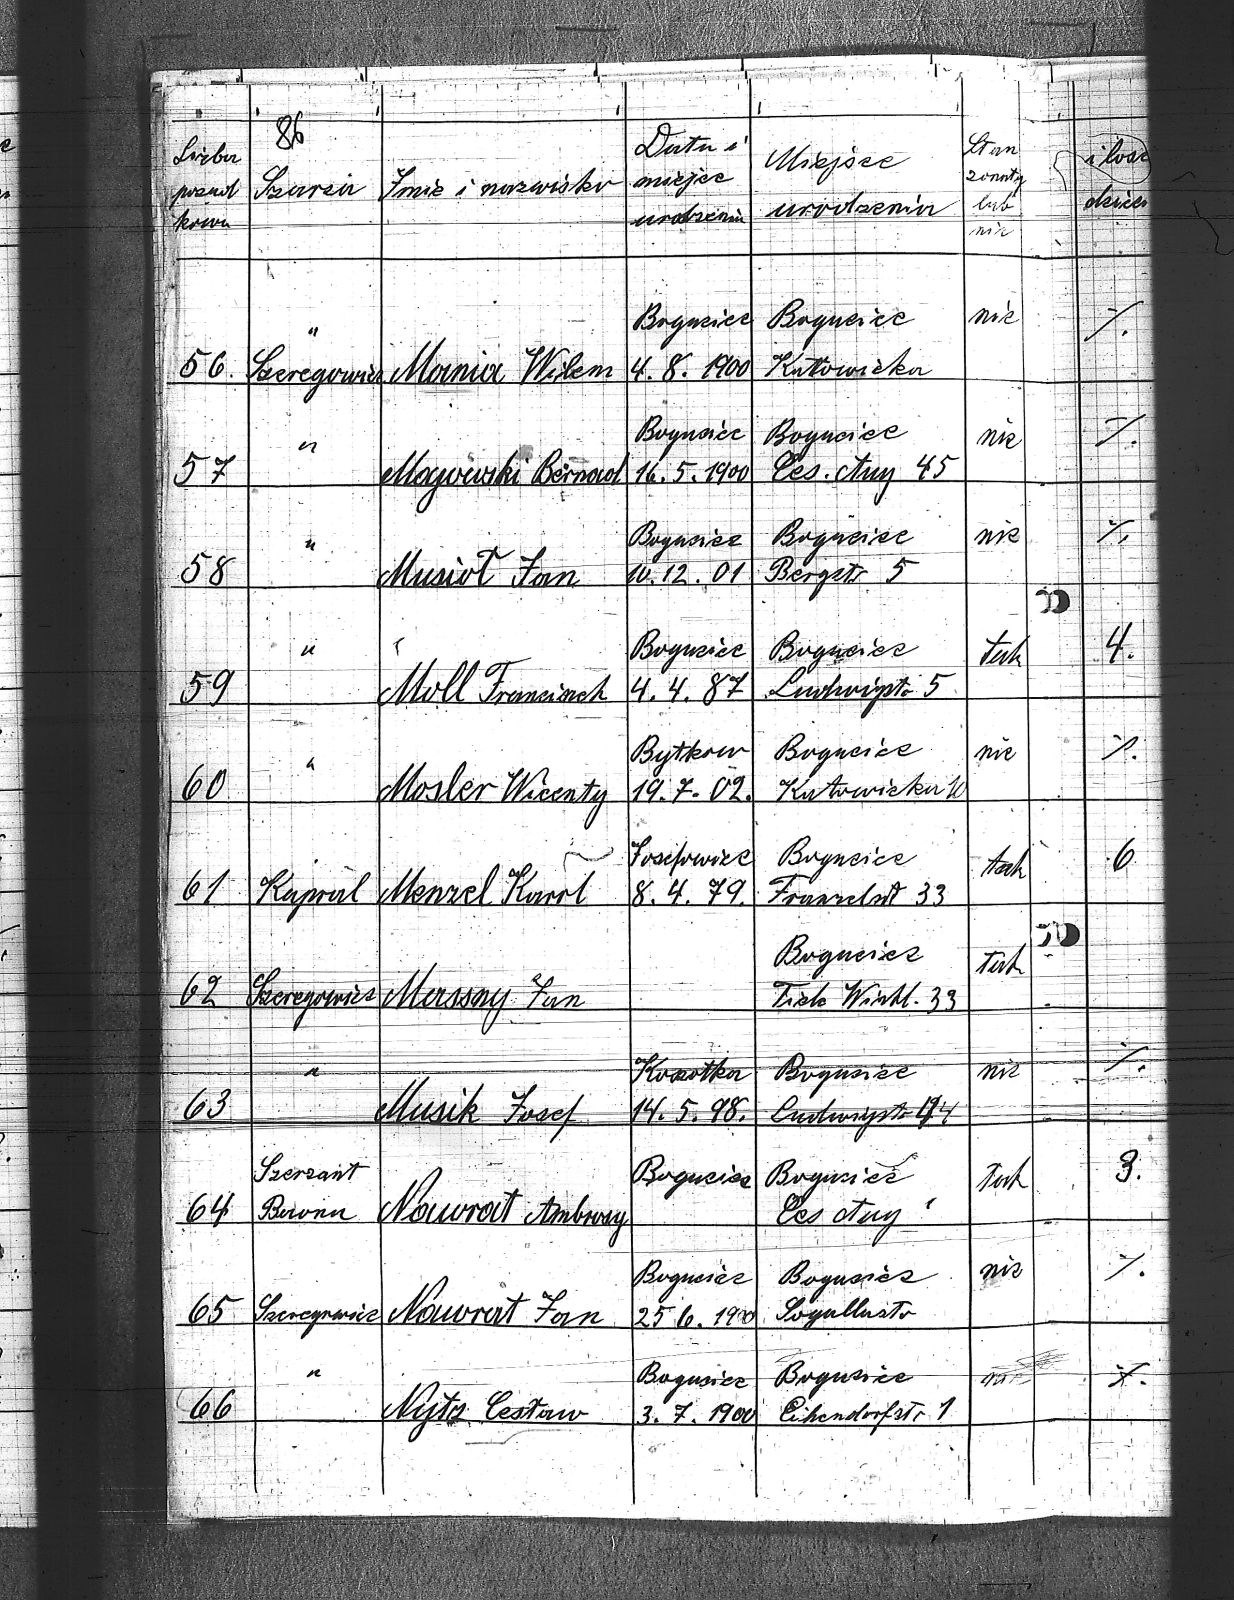 86
Liczba porząd kowa | Szarża | Imię i nazwisko | Data i miejsce urodzenia | Miejsce urodzenia | Stan żonaty lub nie | i ilość dzieci
" | Bogucice | Bogucice | nie | %.
56. Szeregowiec | Mania Wilem | 4. 8. 1900 | Katowicka
" | Bogucice | Bogucice | nie | %.
57 | Magowski Bernard | 16. 5. 1900 | Ces. Aug 45
" | Bogucice | Bogucice | nie | %.
58 | Musioł Jan | 10. 12. 01 | Bergstr 5
" | Bogucice | Bogucice | tak | 4.
59 | Moll Franciszek | 4. 4. 87 | Ludwigstr 5
" | Bytkow | Bogucice | nie | %.
60 | Mosler Wicenty | 19. 7. 02. | Katowicka 10
Josefowiec | Bogucice | tak | 6
61 Kapral | Menzel Karol | 8. 4. 79. | 33
Bogucice | tak
62 Szeregowiec | Massny Jan | 33
" | Kozotka | Bogucice | nie | %.
63 | Musik Josef | 14. 5. 98. | Ludwigstr
Szerzant | Bogucice | Bogucice | tak | 3.
64 | Nawrat Ambrozy | Ces Aug
Bogucice | Bogucice | nie | %.
65 Szeregowiec | Nawrat Jan | 25 6. 1900
" | Bogucice | Bogucice | %.
66 | Nyts Cestaw | 3. 7. 1900 | Eihendorfstr 1